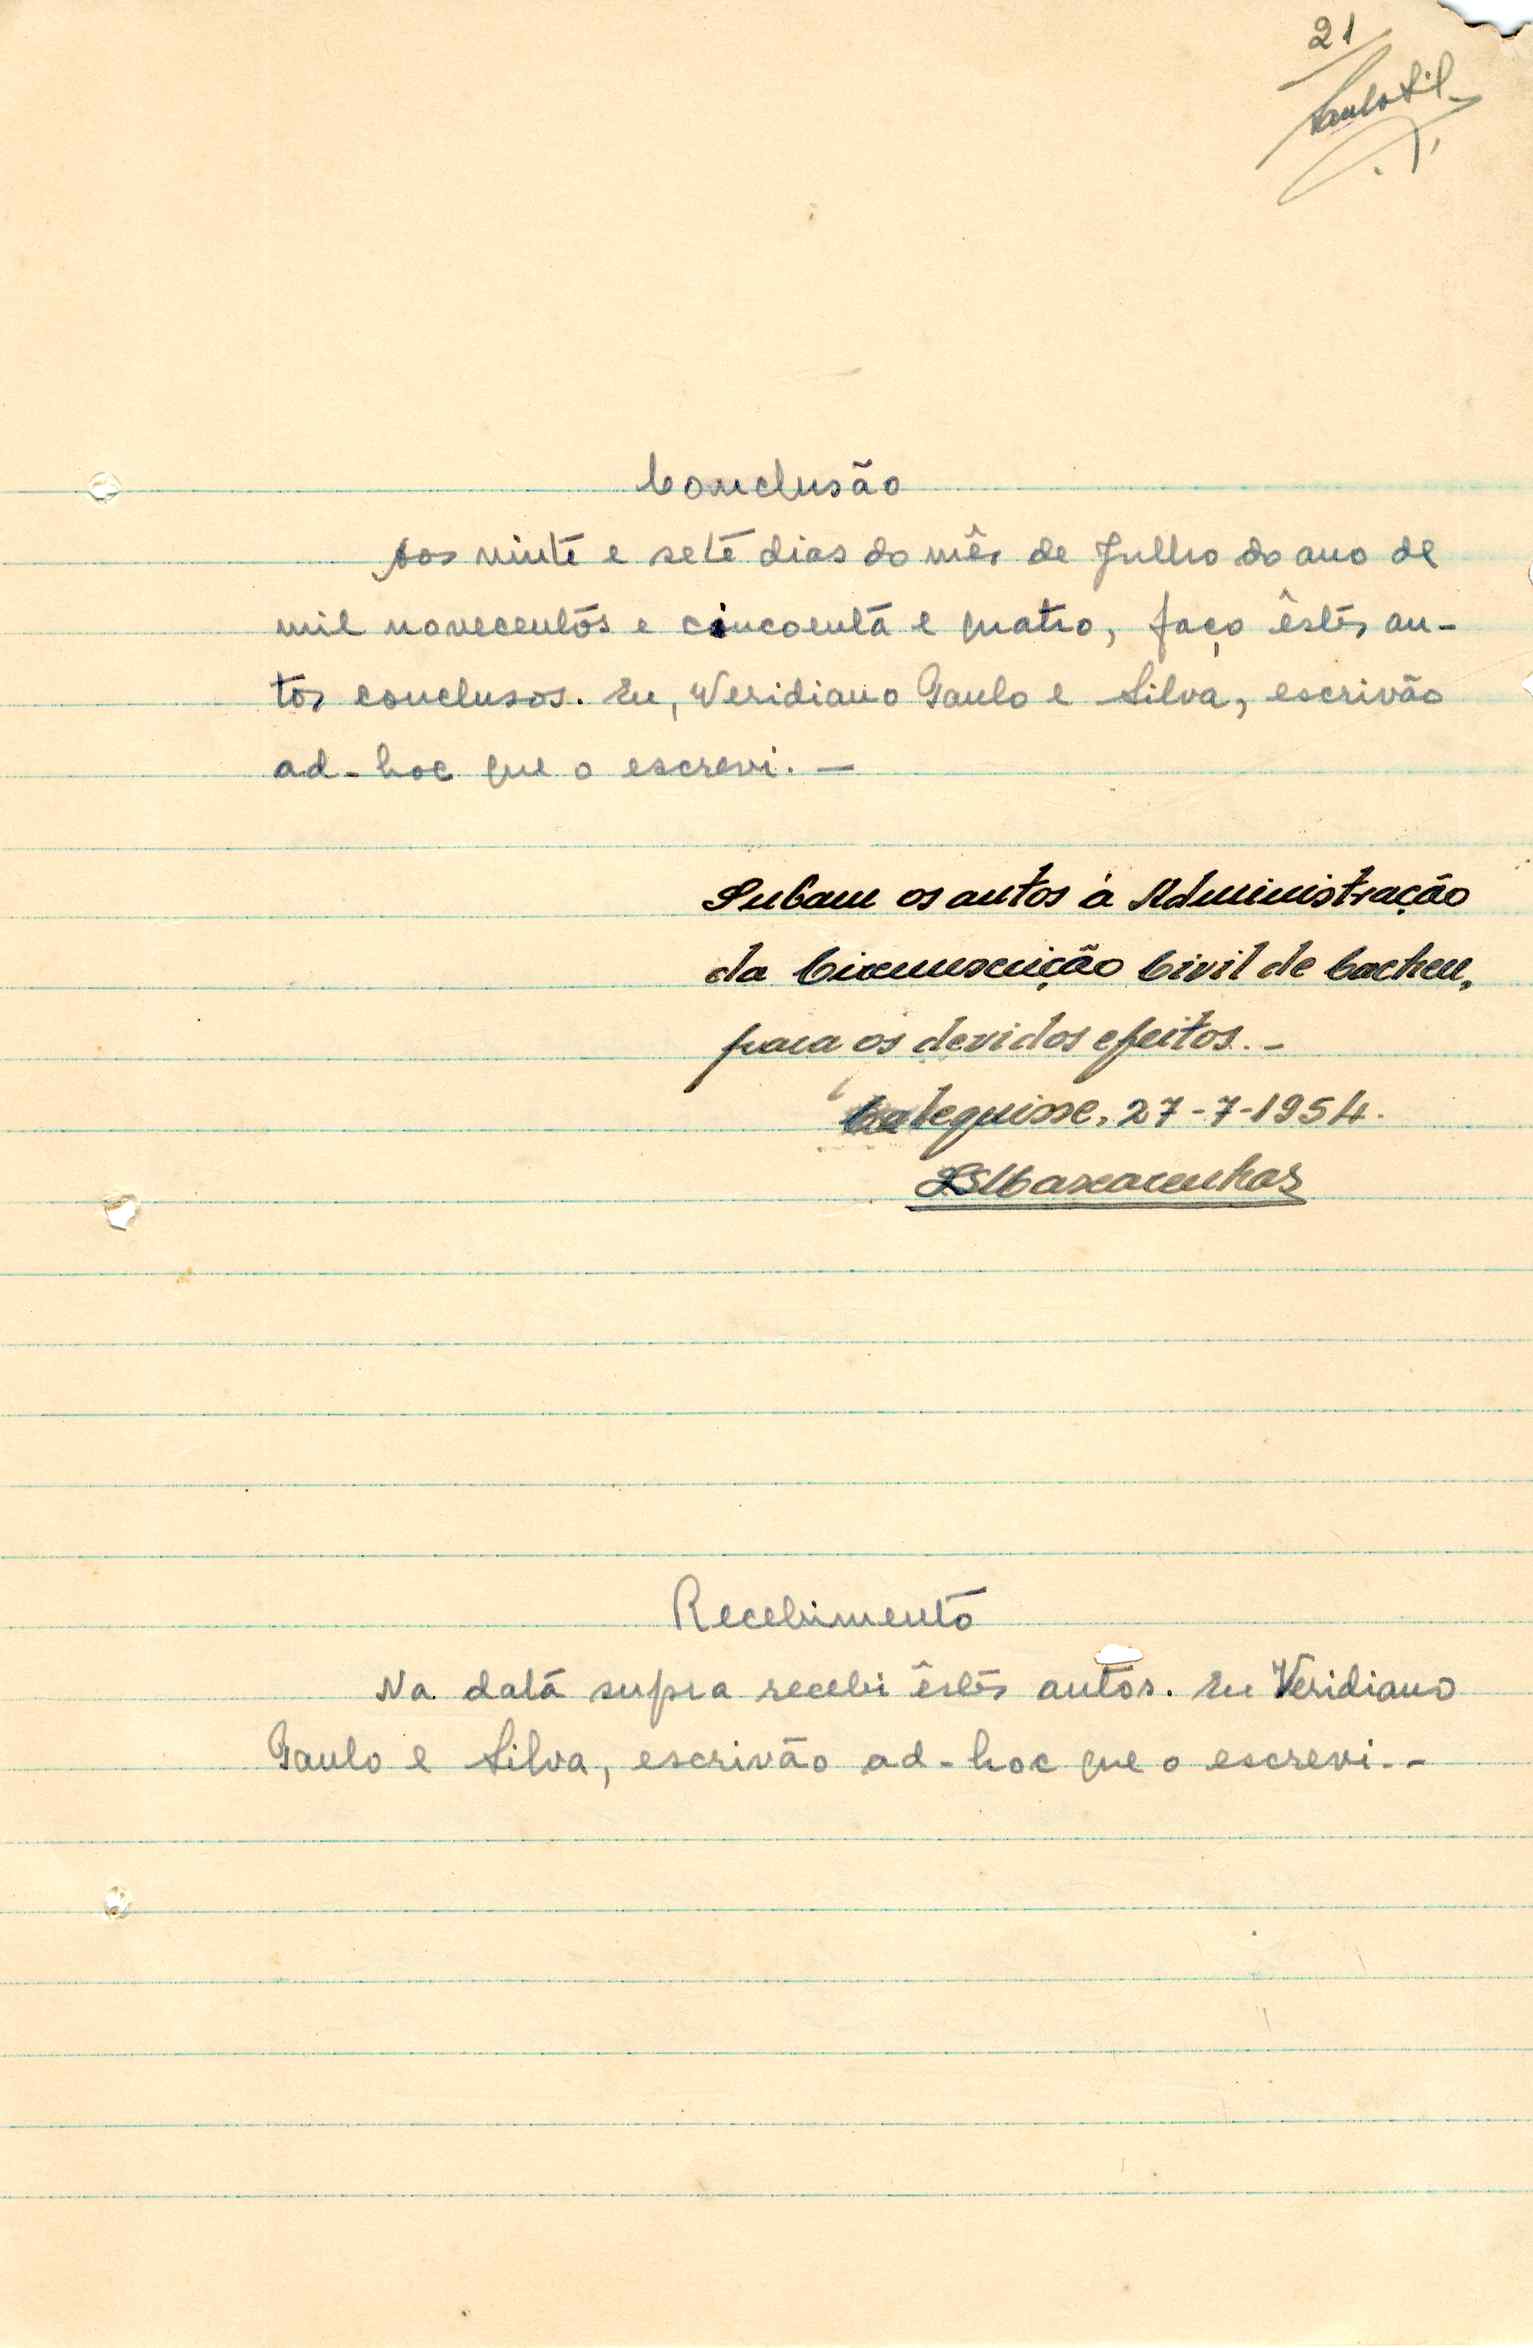 21
Paulo Sil
Conclusão
Aos vinte e sete dias do mês de Julho do ano de
mil novecentos e cincoenta e quatro, faço êstes au-
tos conclusos. Eu, Veridiano Paulo e Silva, escrivão
ad-hoc que o escrevi. —
Subam os autos à Administração
da Circunscrição Civil de Cacheu,
para os devidos efeitos. -
Calequisse, 27-7-1954.
Recebimento
Na data supra recebi êstes autos. Eu Veridiano
Paulo e Silva, escrivão ad-hoc que o escrevi. -